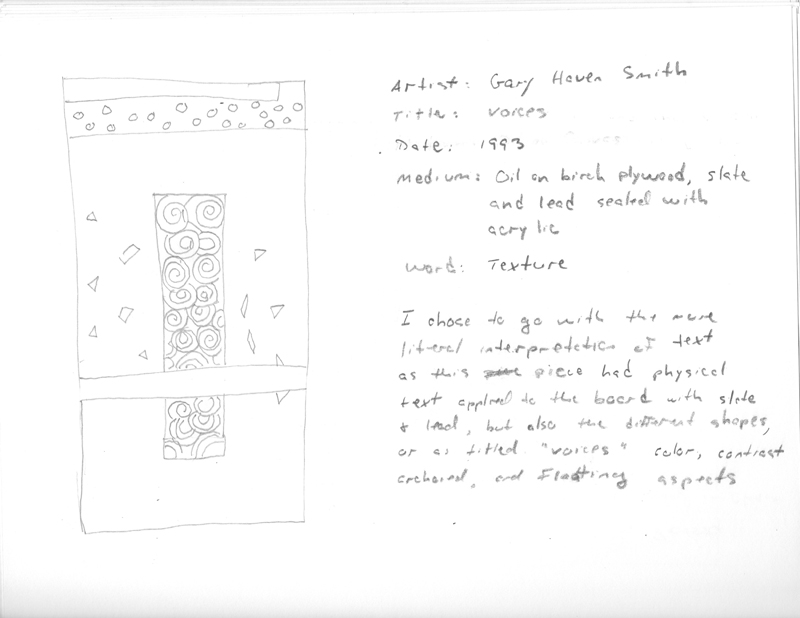 Artist: Gary Haven Smith
Title: Voices
Date: 1993
Medium: Oil on birch plywood, slate
and lead sealed with
acrylic
Word: Texture
I chose to go with the more
literal interpretation of text
as this piece had physical
text applied to the board with slate
& lead, but also the different shapes,
or as titled "voices" color, contrast
anchored, and Floating aspects